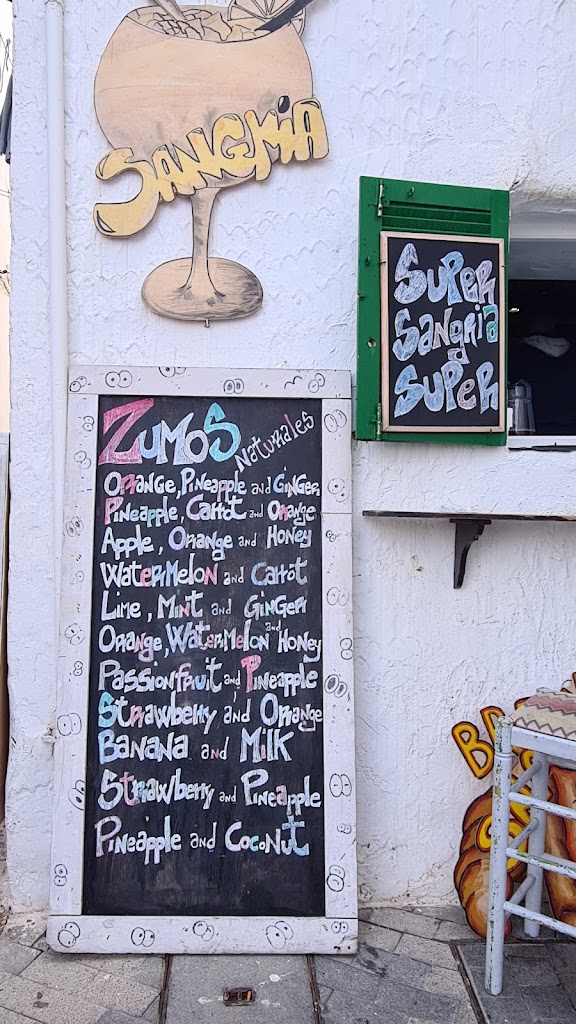 SANGRIA
SUPER
SANGRIA
SUPER
ZUMOS NATURALES
ORANGE, PINEAPPLE AND GINGER
PINEAPPLE, CARROT AND ORANGE
APPLE, ORANGE AND HONEY
WATERMELON AND CARROT
LIME, MINT AND GINGER
ORANGE, WATERMELON AND HONEY
PASSIONFRUIT AND PINEAPPLE
STRAWBERRY AND ORANGE
BANANA AND MILK
STRAWBERRY AND PINEAPPLE
PINEAPPLE AND COCONUT